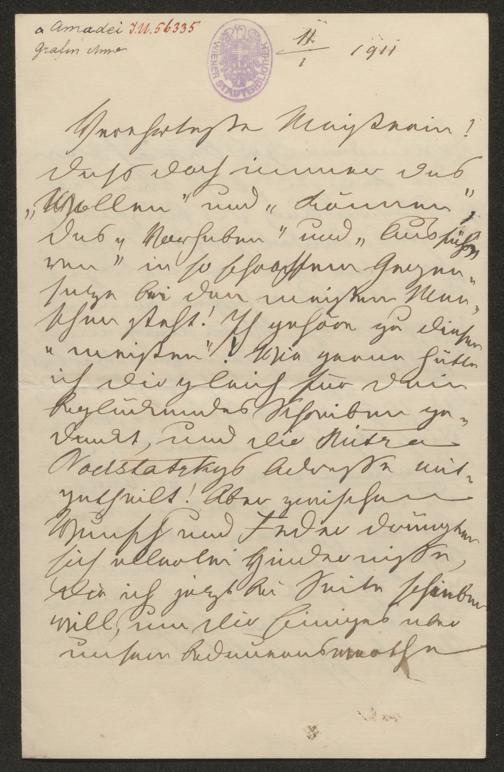 a Amadei J.N. 56335
Gräfin Anna
WIENER STADTBIBLIOTHEK
11/1 1911
Verehrteste Meisterin!
Dass doch immer das
„Wollen“ und „Können“,
das „Vorhaben“ und „Ausfüh
ren“ in so schroffem Gegen-
satze bei den meisten Men-
schen steht! Ich gehöre zu diesen
„meisten“! Wie gerne hätte
ich dir gleich für dein
beglückendes Schreiben ge-
dankt, und dir
Adresse mit-
getheilt! Aber zwischen
Wunsch und Feder drängten
sich allerlei Hindernisse,
die ich jetzt bei Seite schieben
will, um dir Einiges über
unsern bedauernswerthe